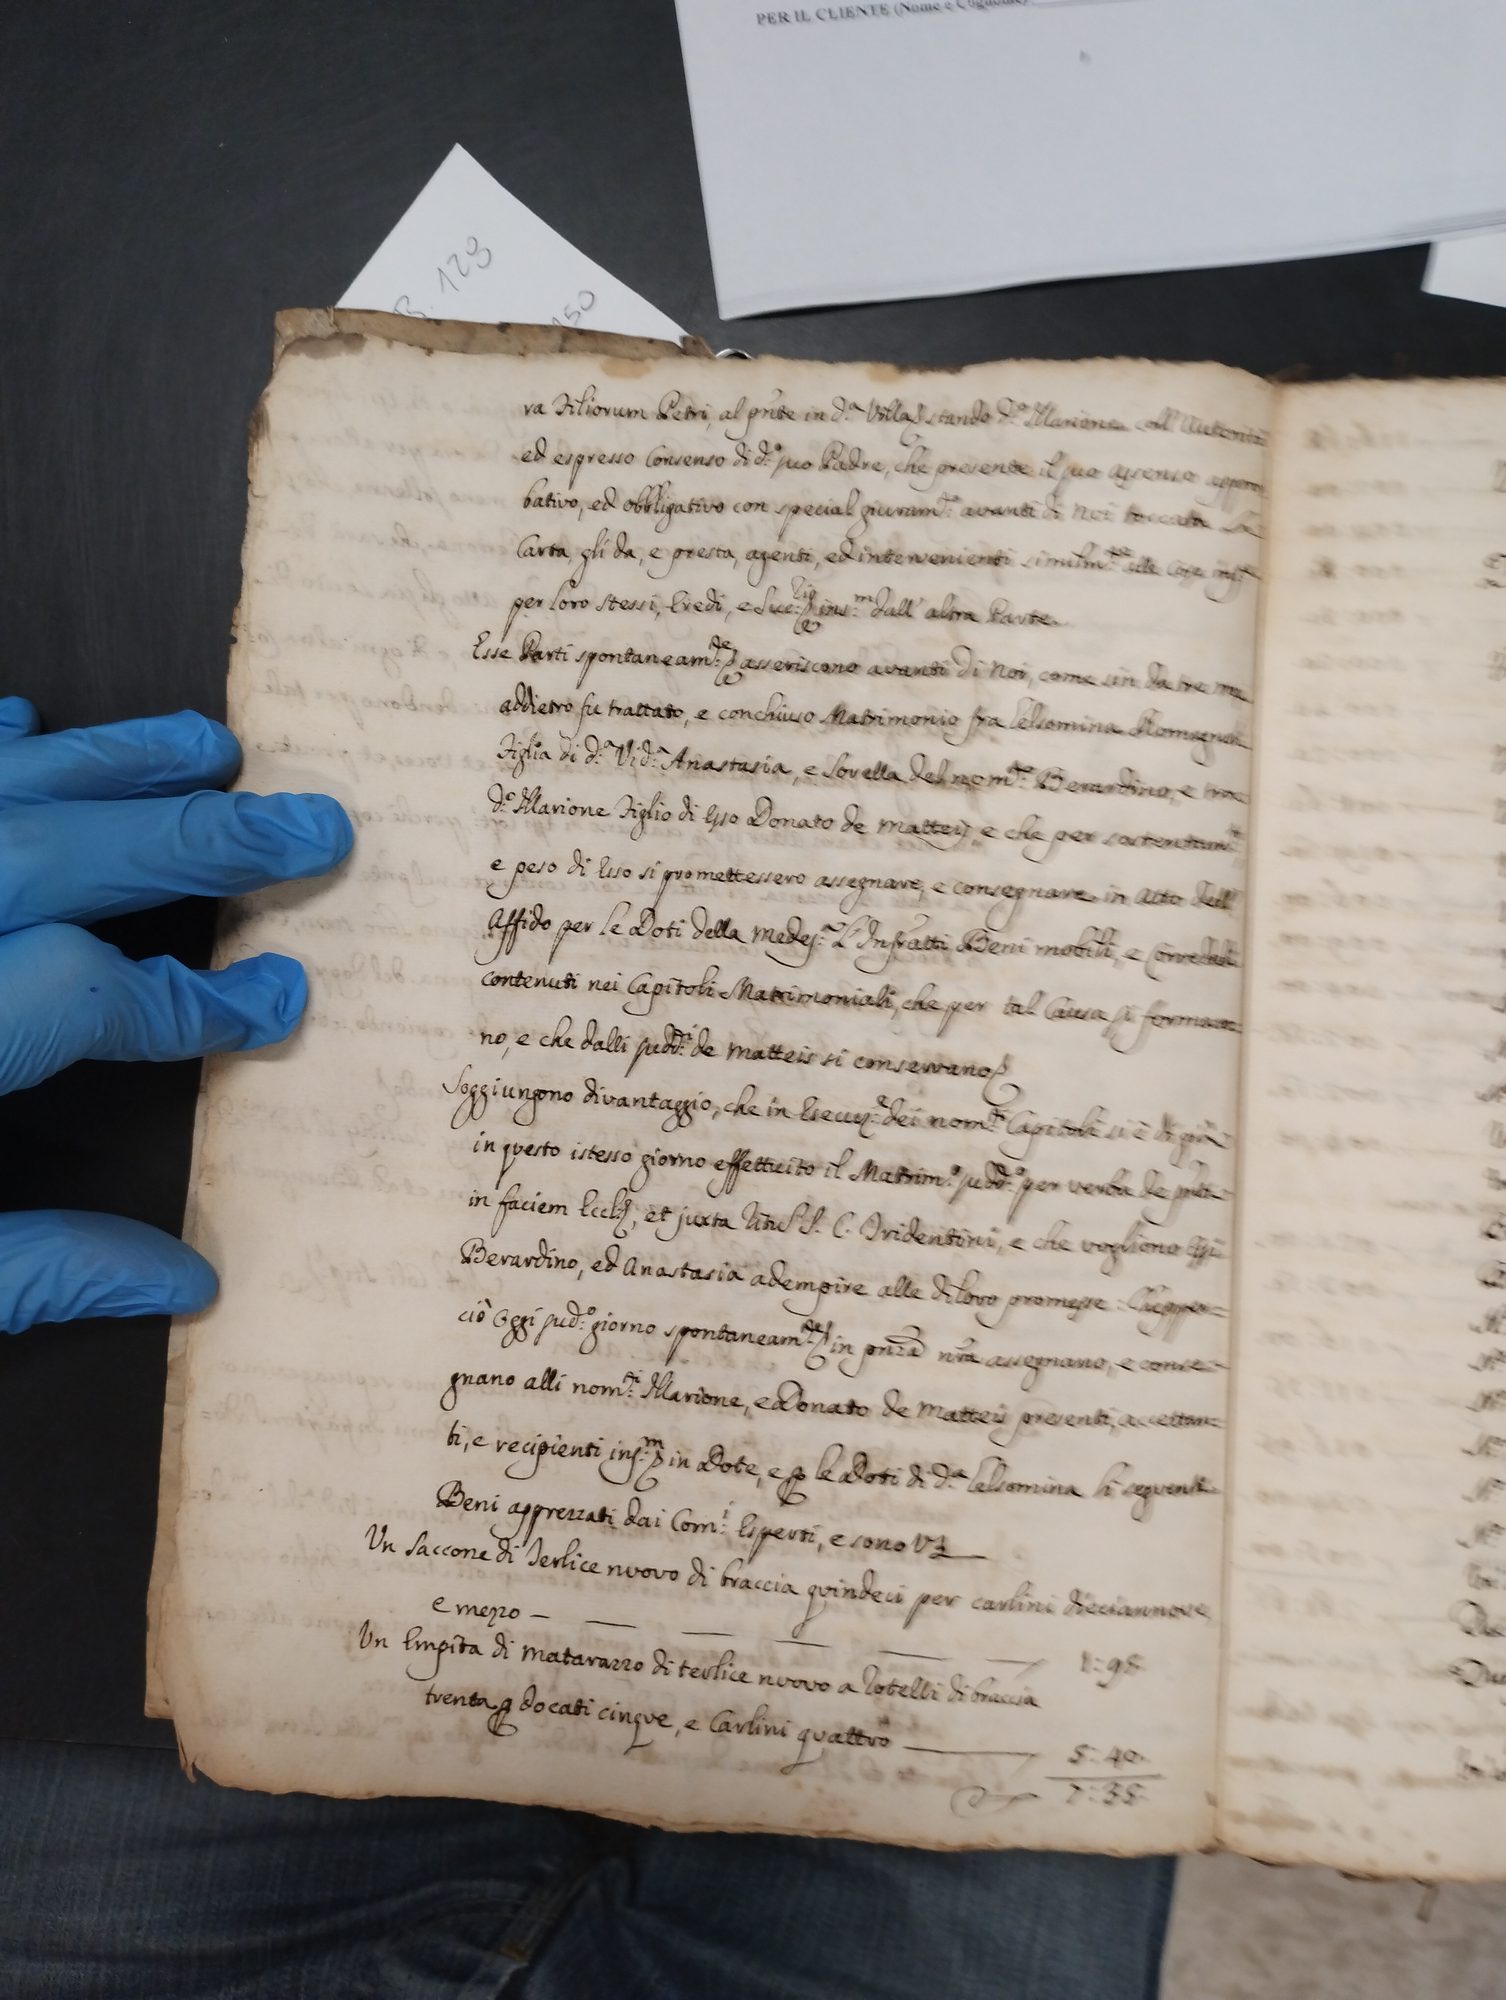 PER IL CLIENTE (Nome e Cognome)
B. 129
150
va Filiorum Petri, al pñte in d.ª Villa, stando d.º Marione coll' Autorità
ed espresso Consenso di d.º suo Padre, che presente il suo assenso appro
bativo, ed obbligativo con special giuram.to avanti di Noi toccata la
Carta gli da, e presta, agenti, ed intervenienti similm.te alle cose inf.te
per loro stessi, Eredi, e Succ.ri ins.m dall' altra Parte.
Esse Parti spontaneam.te asseriscono avanti di Noi, come sin da tre me
addietro fu trattato, e conchiuso Matrimonio fra Celsomina Romagnoli
Figlia di d.ª Vid.ª Anastasia, e Sorella del nom.to Berardino, e tra
d.º Marione Figlio di Esso Donato de Matteis, e che per sostentam.to
e peso di Esso si promettessero assegnare, e consegnare in atto dell'
Affido per le Doti della medes.ª l' Infratti Beni mobili, e Corredali
contenuti nei Capitoli Matrimoniali, che per tal Causa si formaro
no, e che dalli sudd.i de Matteis si conservano
Soggiungono divantaggio, che in Esecuz.e dei nom.ti Capitoli si è di già
in questo istesso giorno effettuito il Matrim.º sudd.º per verba de pñti
in faciem Eccl.ę, et juxta Ritũ S. C. Tridentini, e che vogliono Essi
Berardino, ed Anastasia adempire alle di loro promesse: Chepper=
ciò oggi sud.º giorno spontaneam.te in pñza nr̃a assegnano, e conse=
gnano alli nom.ti Marione, e Donato de Matteis presenti, accettan=
ti, e recipienti ins.m in Dote, e p le Doti di d.ª Celsomina li seguenti
Beni apprezzati dai Com.i Esperti, e sono Vz
Un Saccone di Terlice nuovo di braccia quindeci per carlini dieciannove
e mezzo — — — — — — 1:95
Un Empita di Matarazzo di terlice nuovo a Rotelli di braccia
trenta p docati cinque, e Carlini quattro — 5:40
7:35